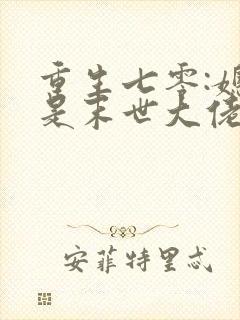 重生七零:媳
是末世大佬
安菲特里忒